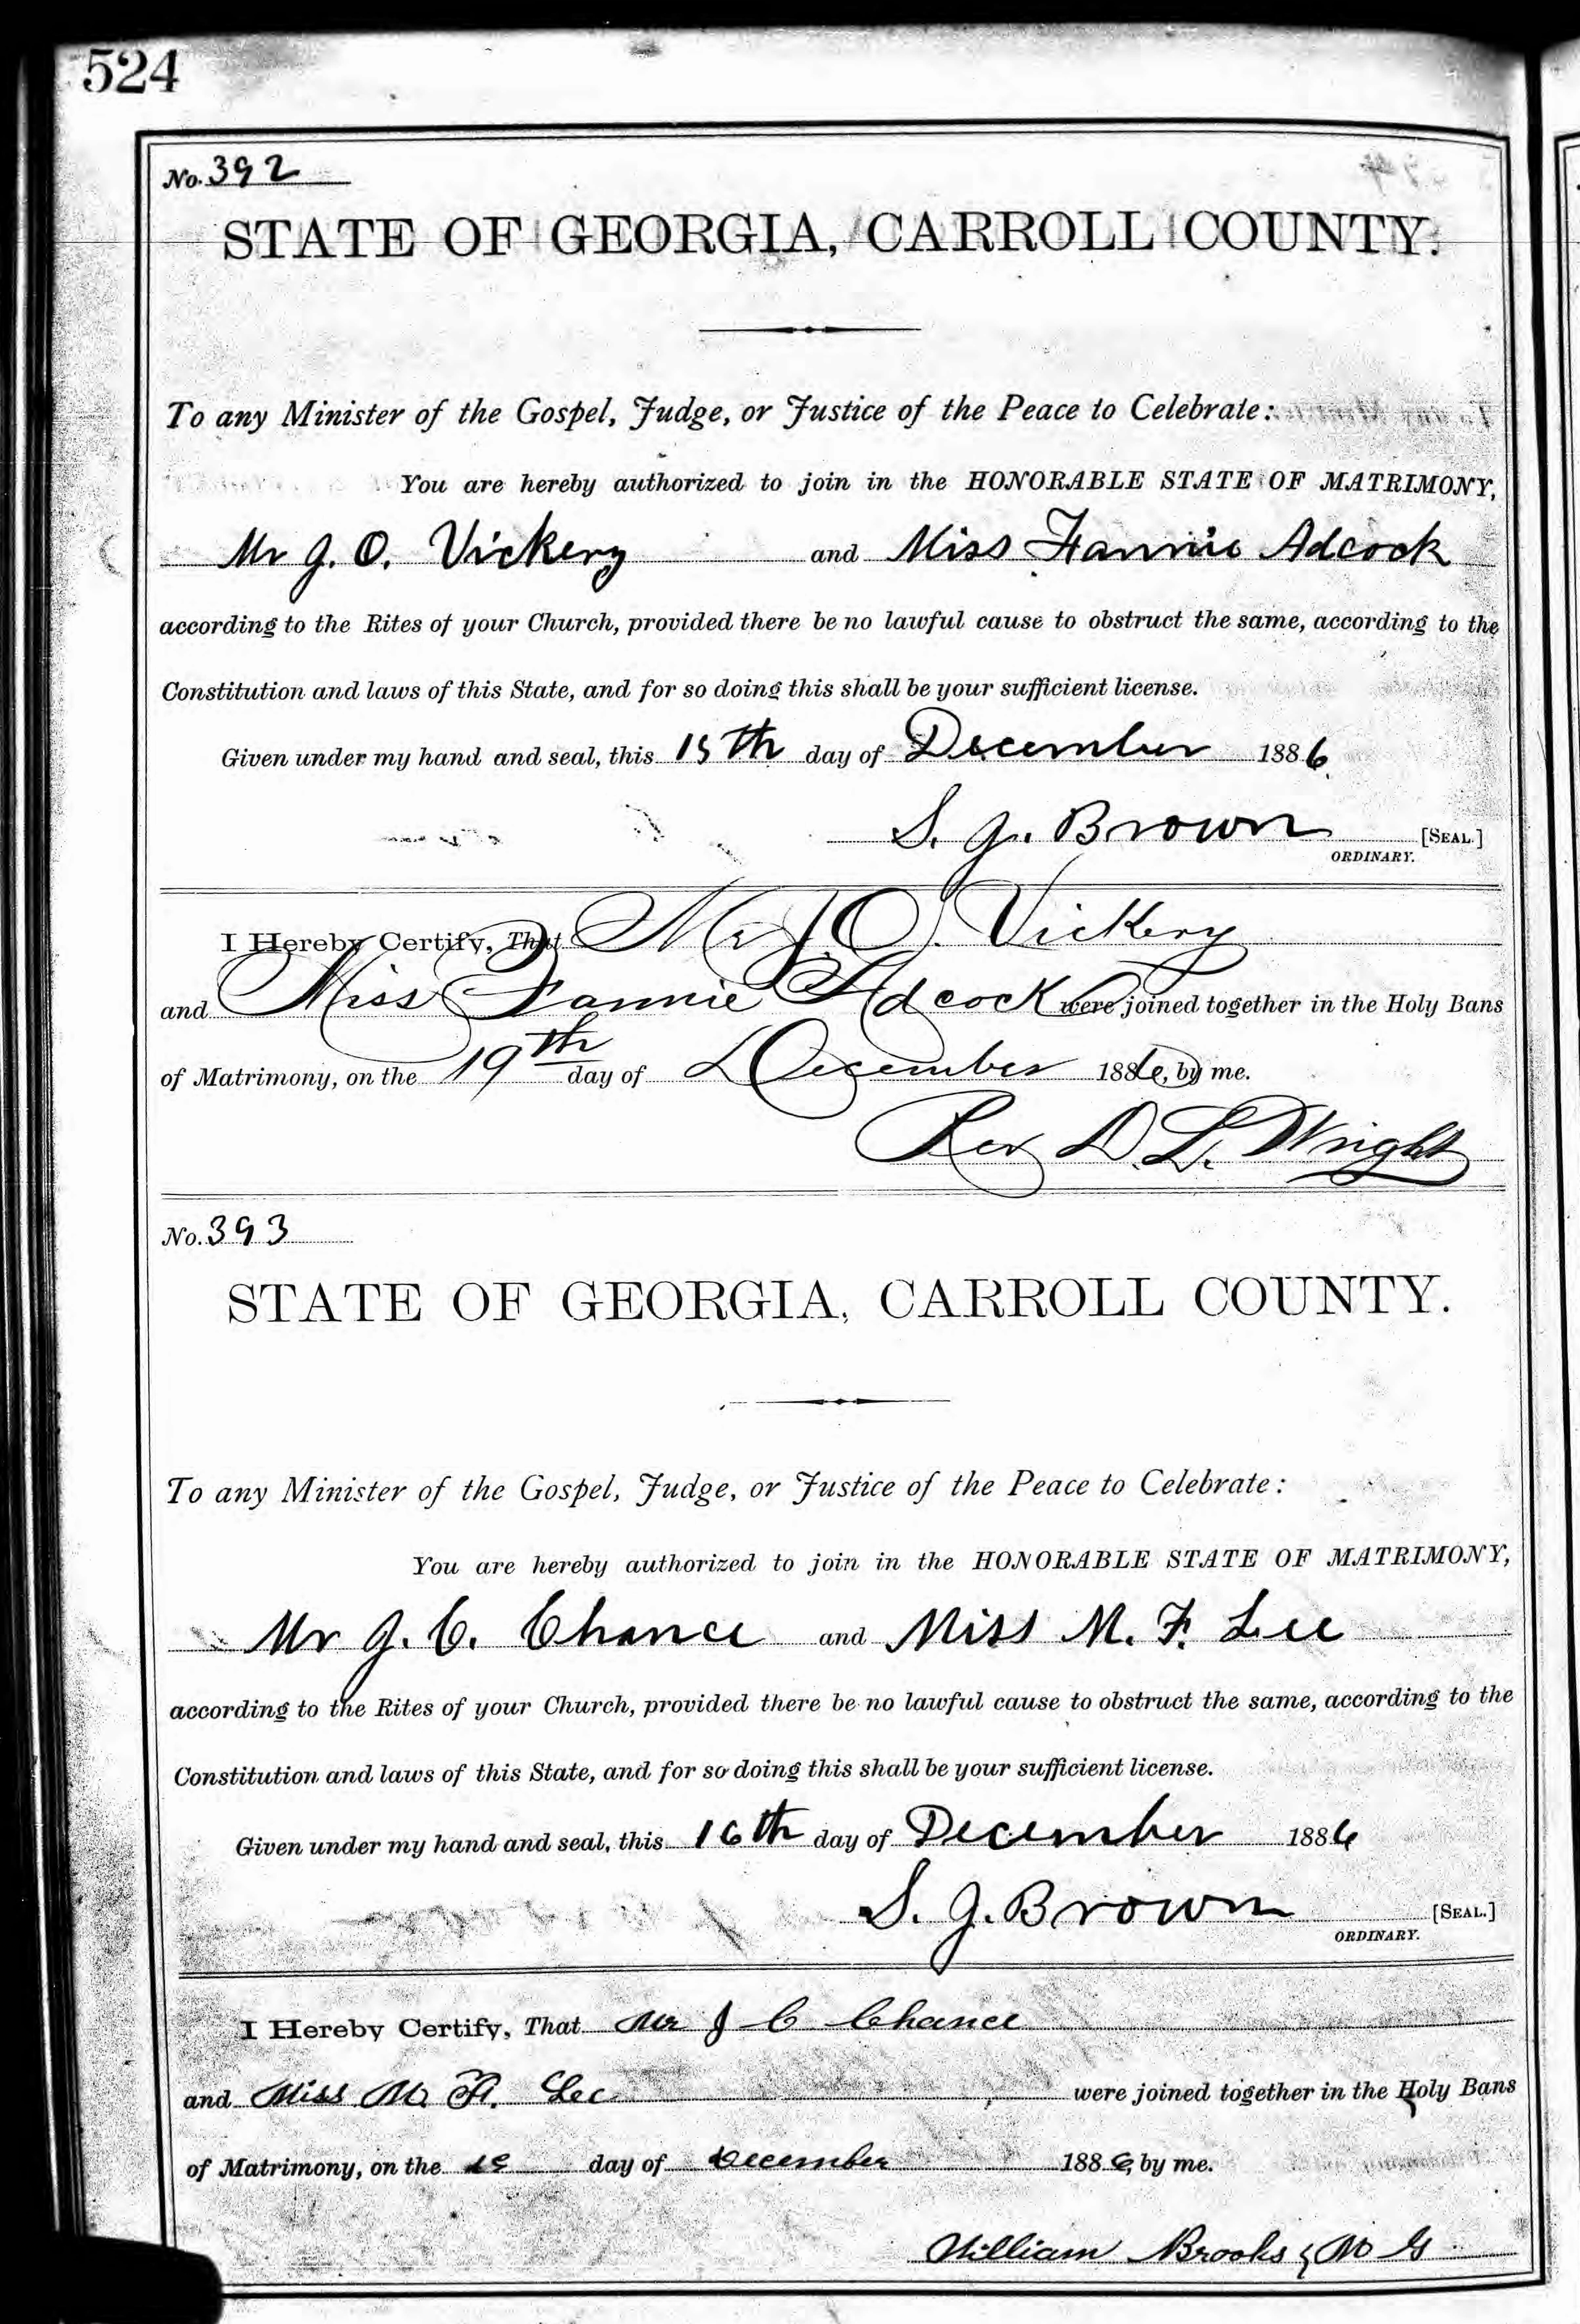 524
No. 392
STATE OF GEORGIA, CARROLL COUNTY.
To any Minister of the Gospel, Judge, or Justice of the Peace to Celebrate:
You are hereby authorized to join in the HONORABLE STATE OF MATRIMONY,
Mr J. O. Vickery and Miss Fannie Adcock
according to the Rites of your Church, provided there be no lawful cause to obstruct the same, according to the
Constitution and laws of this State, and for so doing this shall be your sufficient license.
Given under my hand and seal, this 15th day of December 1886
S. J. Brown [SEAL.]
ORDINARY.
I Hereby Certify, That Mr J O. Vickery
and Miss Fannie Adcock were joined together in the Holy Bans
of Matrimony, on the 19th day of December 1886, by me.
Rev D. L. Wright
No. 393
STATE OF GEORGIA, CARROLL COUNTY.
To any Minister of the Gospel, Judge, or Justice of the Peace to Celebrate:
You are hereby authorized to join in the HONORABLE STATE OF MATRIMONY,
Mr J. C. Chance and Miss M. F. Lee
according to the Rites of your Church, provided there be no lawful cause to obstruct the same, according to the
Constitution and laws of this State, and for so doing this shall be your sufficient license.
Given under my hand and seal, this 16th day of December 1886
S. J. Brown [SEAL.]
ORDINARY.
I Hereby Certify, That Mr J C Chance
and Miss M. F. Lee were joined together in the Holy Bans
of Matrimony, on the day of December 1886, by me.
William Brooks, M G